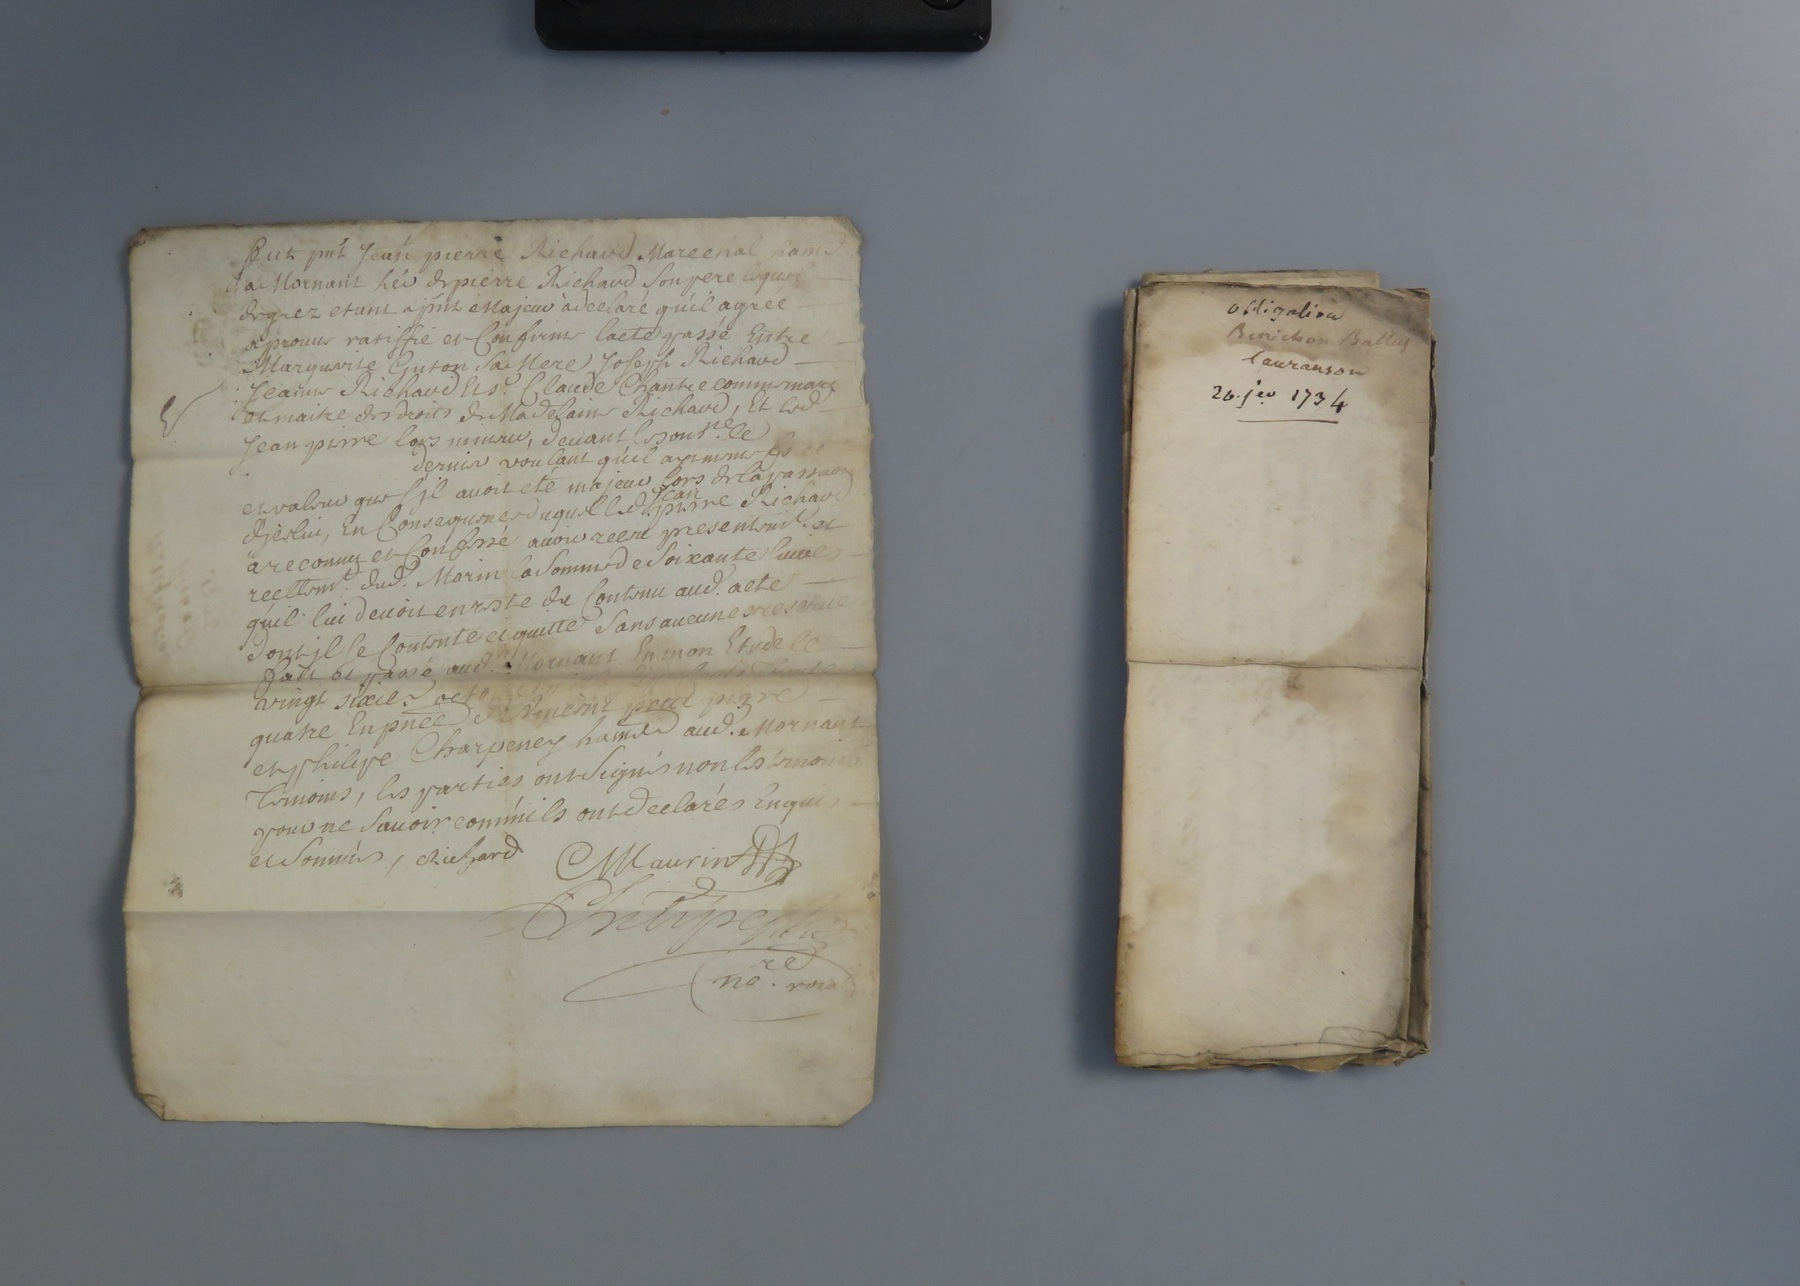 fut pnt Jean pierre Richard Marechal
da Mornant de pierre Richard son pere lequel
de grez etant apnt Majeur a declaré qu'il agrée
aprouve ratiffie et Confirme lacte passé Entre
Marguerite Guton Sa Mere Joseph Richard
Jeanne Richard Et Sr. Claude Chantre comme mary
et maitre des droits de Madelaine Richard, Et led.
Jean pierre lors mineur, devant le
dernier voulant qu'il
et valeur que s'il avoit eté majeur lors de la passation
Dicelui, En Consequence duquel led. Jean pierre Richard
a reconnu et Confessé avoir receu presentemt. et
reellemt. dud. Morin la Somme de Soixante livres
qu'il lui devoit en reste du Contenu aud. acte
dont il se Contente et quitte Sans aucune reserve
fait et passé aud. Mornant En mon Etude le
vingt sixie.
quatre En pnce pierre
et philipe Charpeney aud. Mornant
temoins, les parties ont Signés non les temoins
pour ne Savoir comm'ils ont declarés Enquis
et Sommés, Richard
Maurin
no.re
obligation
26 1734